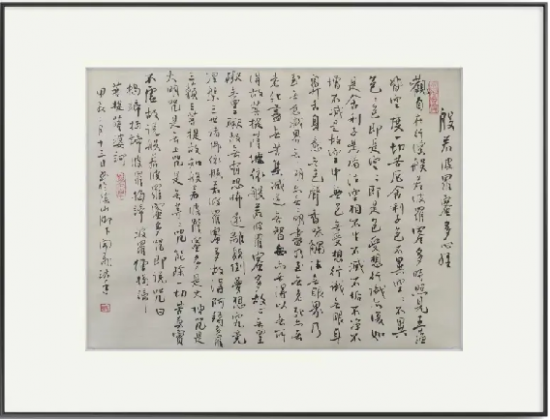 般若波羅蜜多心經
觀自在行深般若波羅蜜多時照見五蘊
皆空度一切苦厄舍利子色不異空空不異
色色即是空空即是色受想行識亦復如
是舍利子是諸法空相不生不滅不垢不淨不
增不減是故空中無色無受想行識無眼耳
鼻舌身意無色聲香味觸法無眼界乃
至無意識界無無明亦無無明盡乃至無老死亦無
老死盡無苦集滅道無智亦無得以無所
得故菩提薩埵依般若波羅蜜多故心無罣
礙無罣礙故無有恐怖遠離顛倒夢想究竟
涅槃三世諸佛依般若波羅蜜多故得阿耨多羅
三藐三菩提故知般若波羅蜜多是大神咒是
大明咒是無上咒是無等等咒能除一切苦真實
不虛故說般若波羅蜜多咒即說咒曰
揭諦揭諦波羅揭諦波羅僧揭諦
菩提薩婆訶
月十三日 於 山腳下